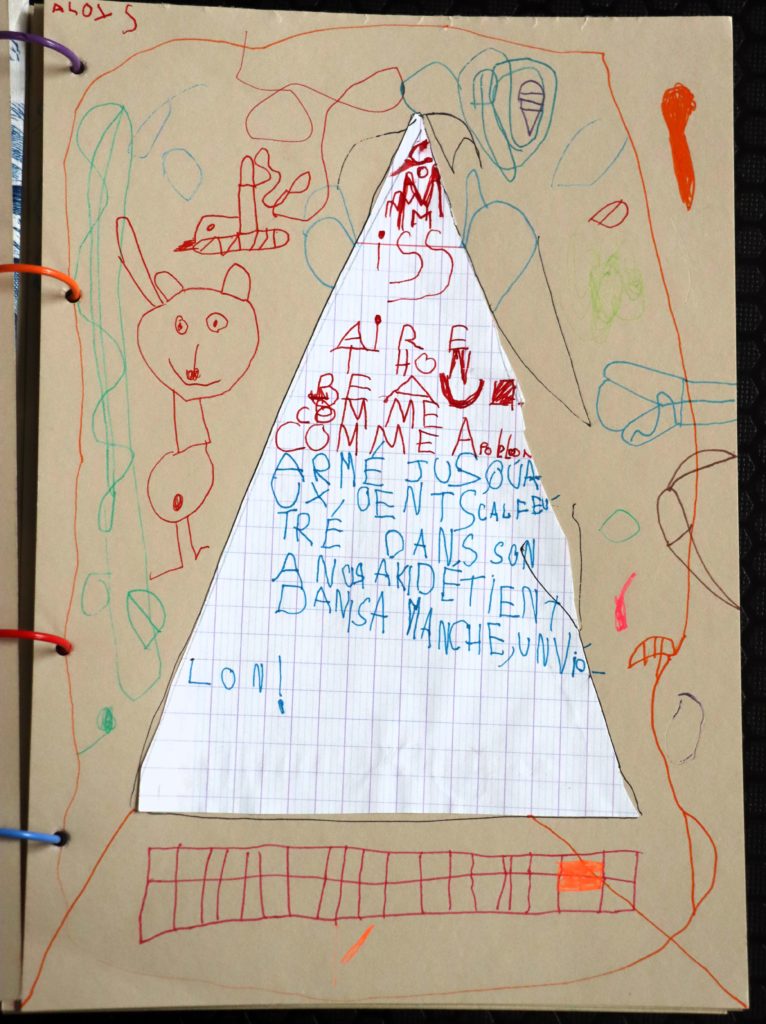 ALOYS
COM
M
iSS
AiRE
THON
BEAU
COMME
COMME APOLLON
ARMÉ JUSQUA
UX DENTS CALFEU-
TRÉ DANS SON
ANORAK DÉTIENT
DANSA MANCHE, UN Vio-
LON!